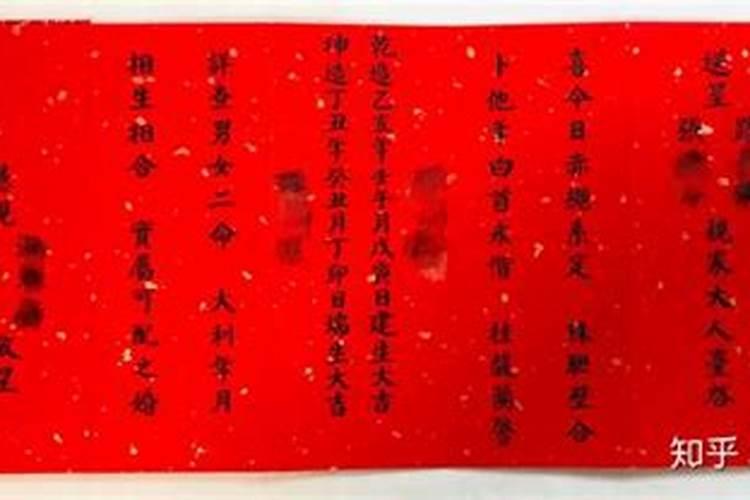 送呈
張
親家大人臺啓
喜今日赤繩系定 珠聯璧合
卜他年白首永偕 桂馥蘭馨
乾造乙亥年壬午月戊寅日建生大吉
坤造丁丑年癸丑月丁卯日端生大吉
詳查男女二命 大利年月
相生相合 實屬可配之婚
知乎